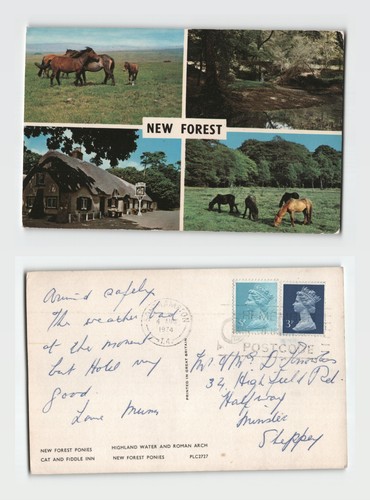 NEW FOREST
Arrived safely.
The weather bad
at the moment
but Hotel very
good.
Love Mum
1974
PRINTED IN GREAT BRITAIN
POSTCODE
Mr & Mrs D
34, Highfield Rd.
Halfway
Minster
Sheppey
NEW FOREST PONIES HIGHLAND WATER AND ROMAN ARCH
CAT AND FIDDLE INN NEW FOREST PONIES PLC2727